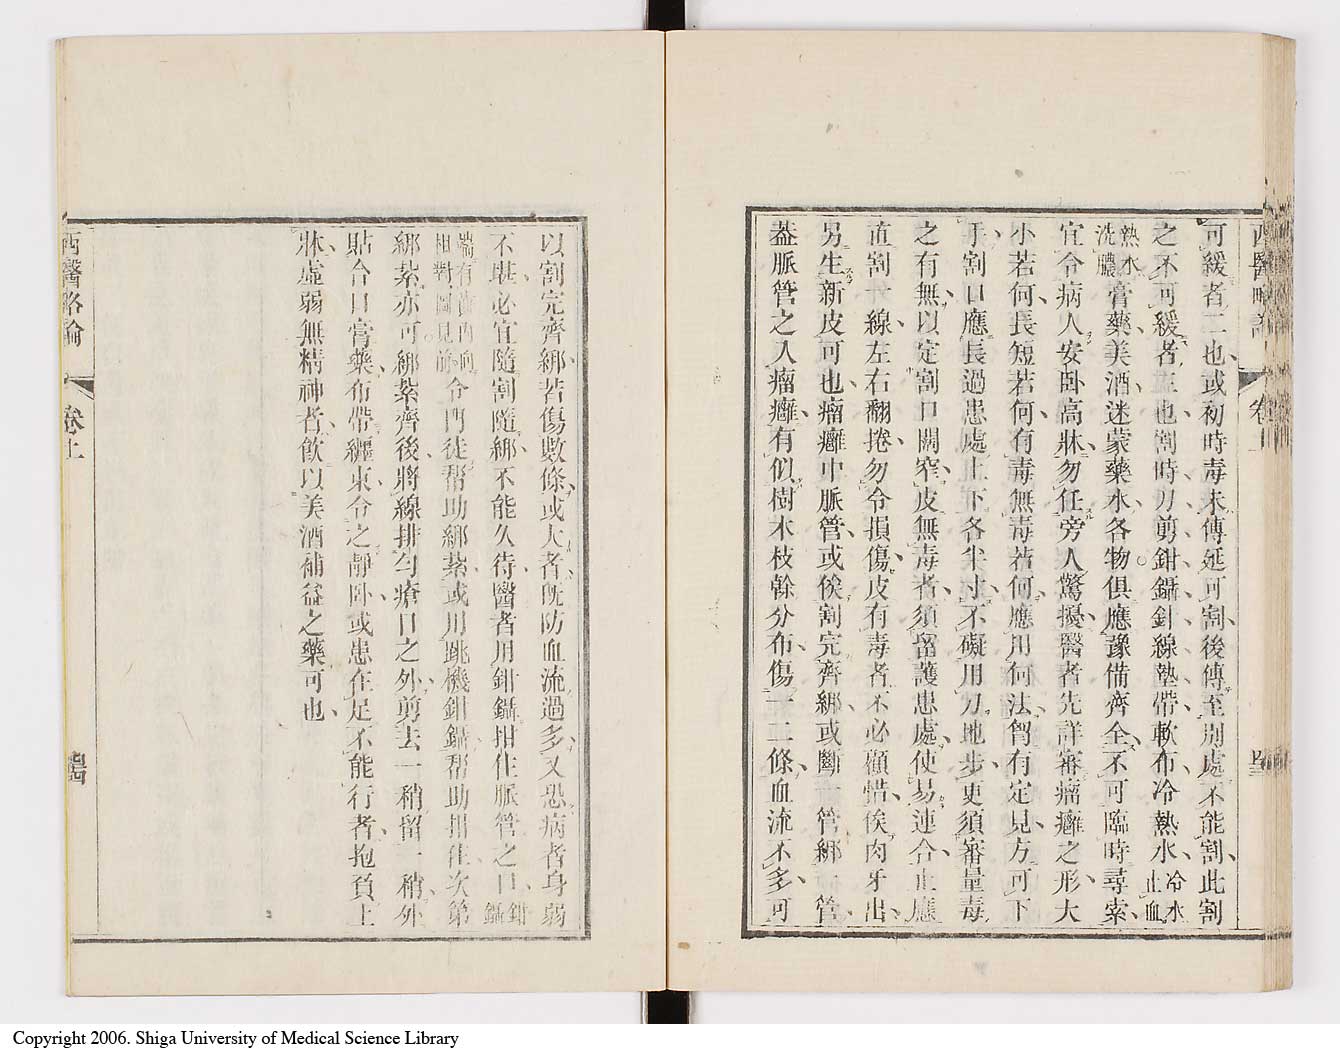 西醫略論 卷上
可緩者二也或初時毒未傳延可割後傳至別處不能割此割
之不可緩者三也割時刀剪鉗鑷針線墊帶軟布冷熱水冷水止血
熱水洗膿膏藥美酒迷蒙藥水各物俱應豫備齊全不可臨時尋索
宜令病人安臥高牀勿任旁人驚擾醫者先詳審瘤癰之形大
小若何長短若何有毒無毒若何應用何法胷有定見方可下
手割口應長過患處上下各半寸不礙用刀地步更須審量毒
之有無以定割口闊窄皮無毒者須留護患處使易連合止應
直割一線左右翻捲勿令損傷皮有毒者不必顧惜俟肉牙出
另生新皮可也瘤癰中脈管或俟割完齊綁或斷一管綁一管
葢脈管之入瘤癰有似樹木枝幹分布傷一二條血流不多可
以割完齊綁若傷數條或大者旣防血流過多又恐病者身弱
不堪必宜隨割隨綁不能久待醫者用鉗鑷拑住脈管之口鉗鑷
端有齒內向相對圖見前令門徒幇助綁紮或用跳機鉗鑷幇助拑住次第
綁紮亦可綁紮齊後將線排勻瘡口之外剪去一稍留一稍外
貼合口膏藥布帶纏束令之靜臥或患在足不能行者抱負上
牀虛弱無精神者飲以美酒補益之藥可也
西醫略論 卷上